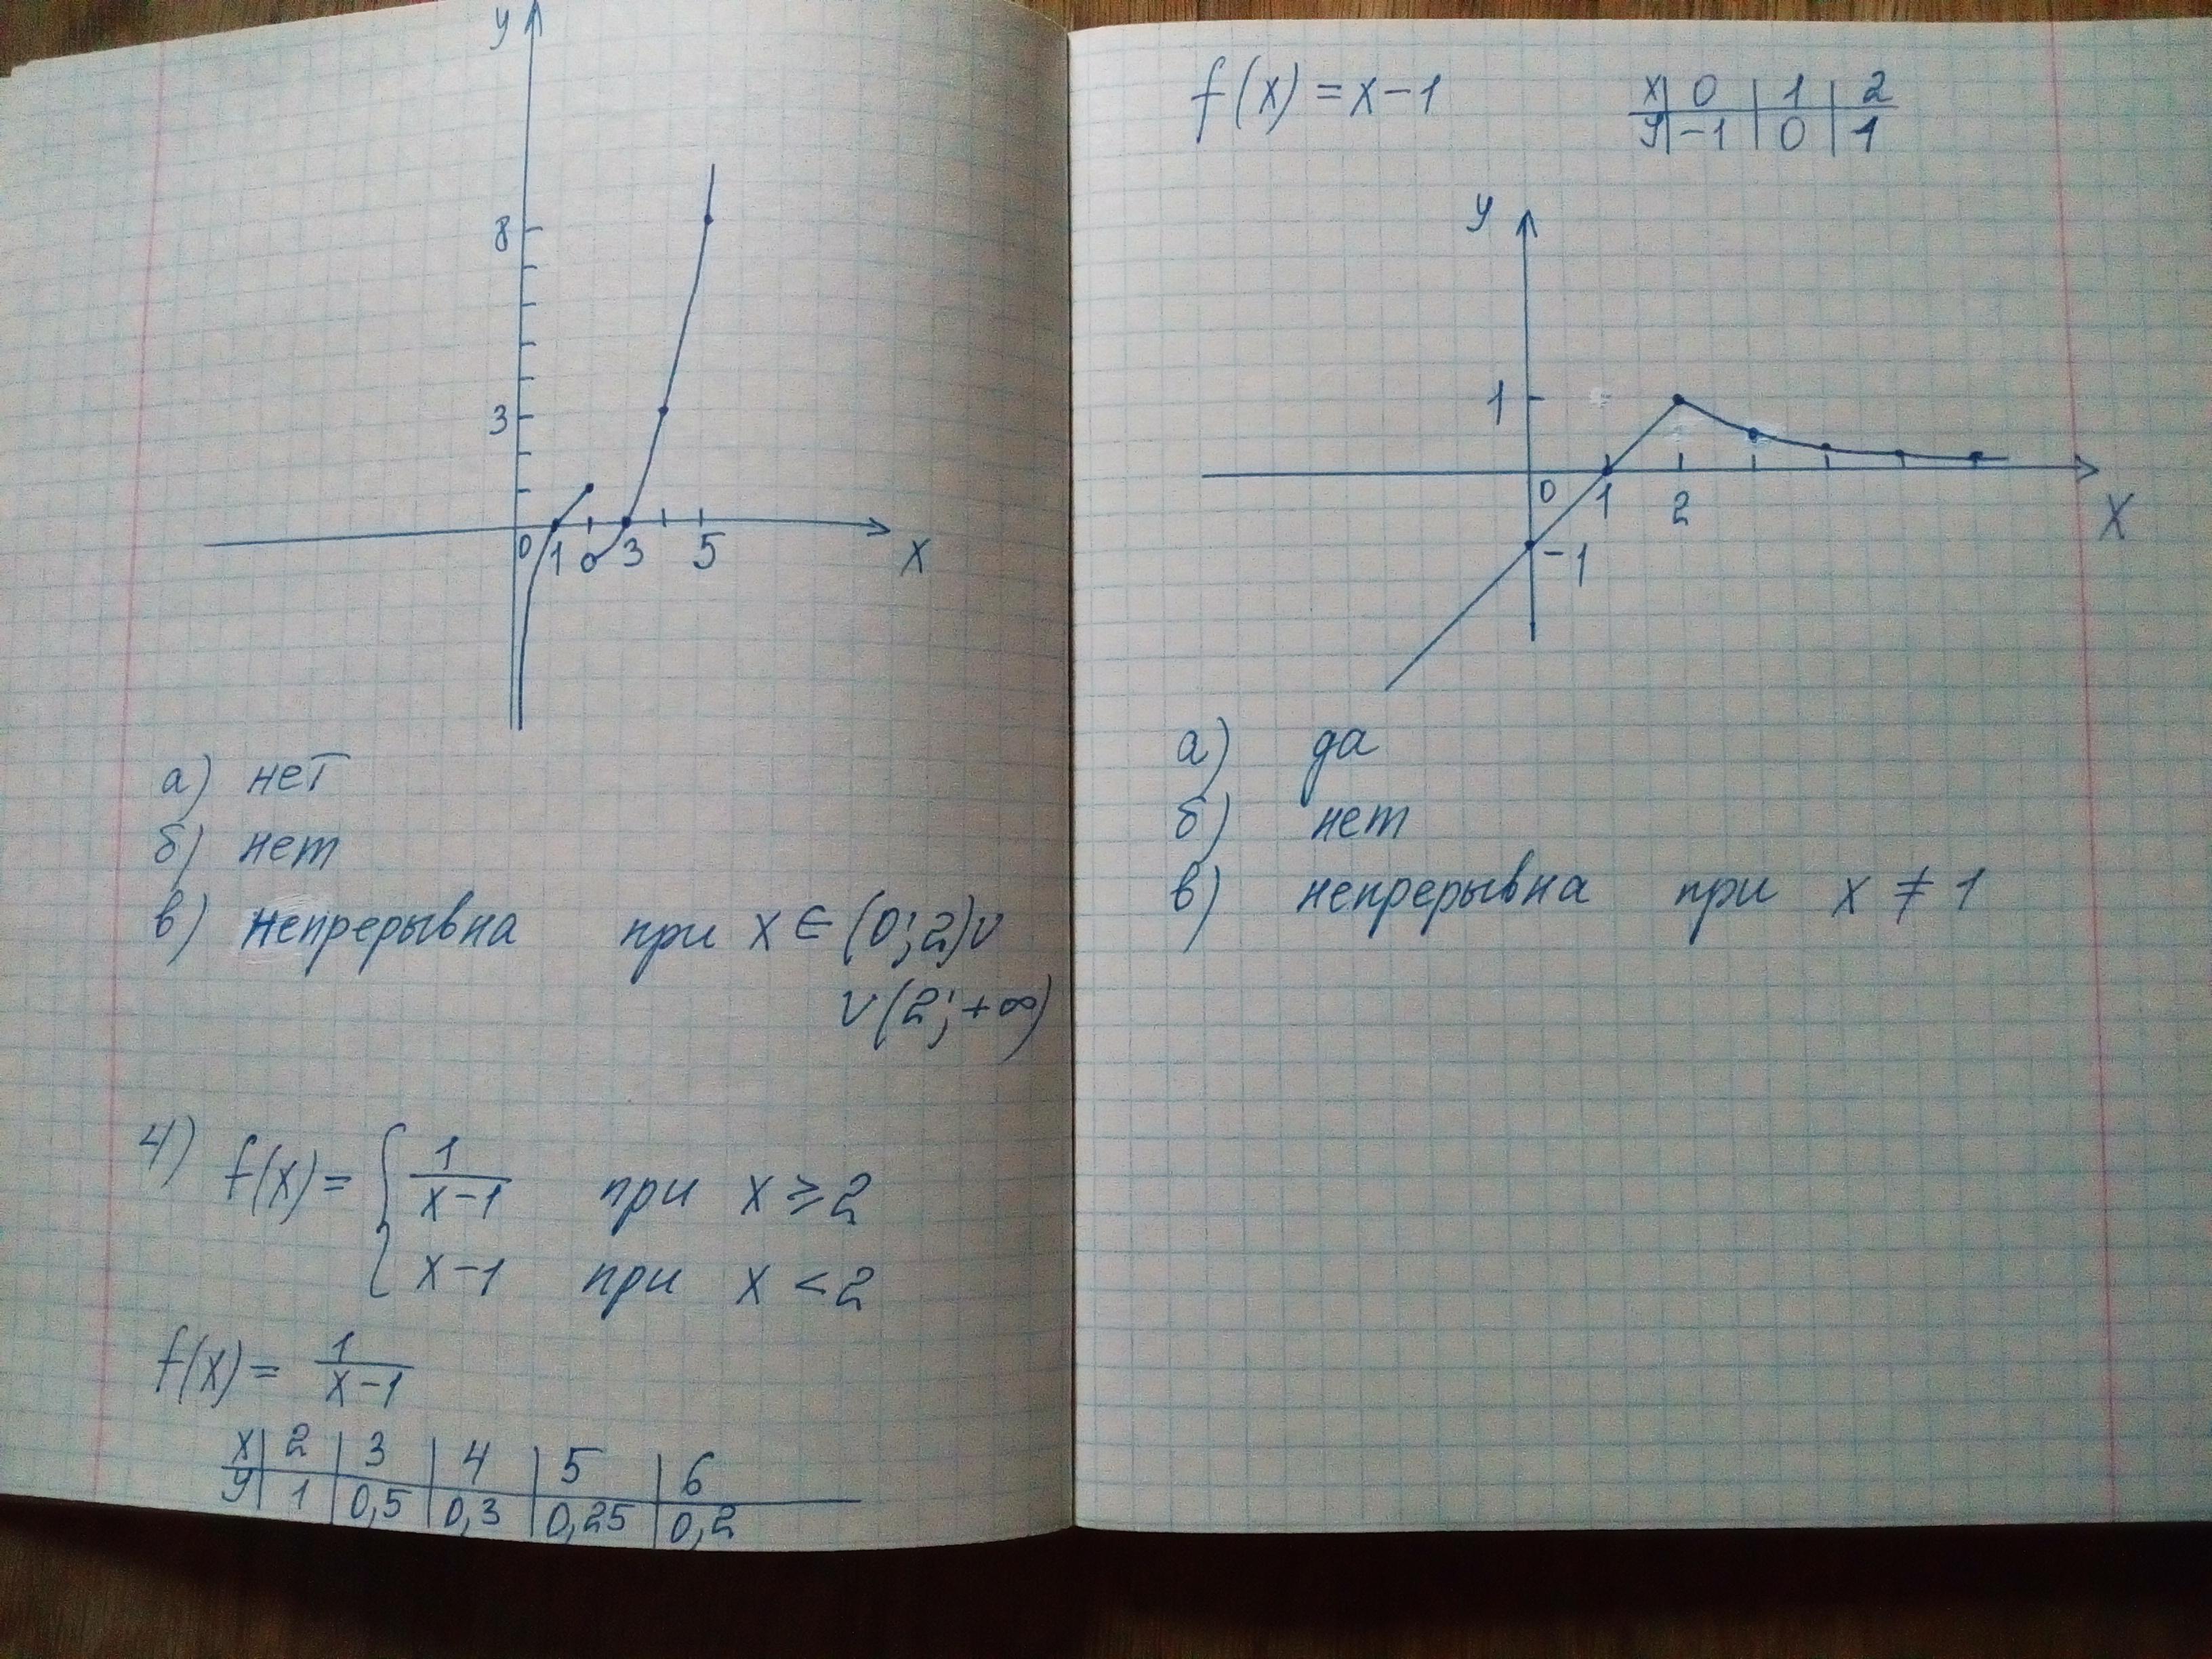 y
8
3
0 1 3 5 x
а) нет
б) нет
в) непрерывна при x ∈ (0; 2) ∪
∪ (2; +∞)
4) f(x) = { 1/(x-1) при x ≥ 2
x-1 при x < 2
f(x) = 1/(x-1)
x | 2 | 3 | 4 | 5 | 6
y | 1 | 0,5 | 0,3 | 0,25 | 0,2
f(x) = x-1
x | 0 | 1 | 2
y | -1 | 0 | 1
y
1
0 1 2 x
-1
а) да
б) нет
в) непрерывна при x ≠ 1